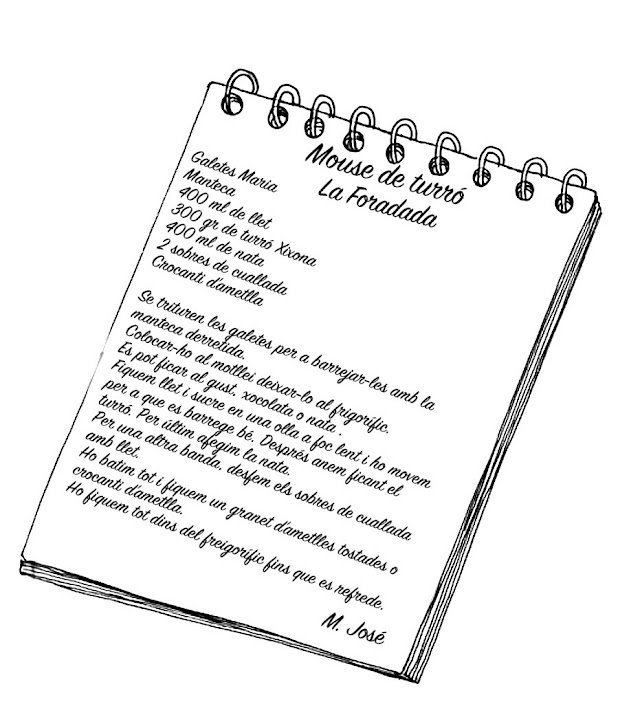 Mouse de turró
La Foradada
Galetes Maria
Manteca
400 ml de llet
300 gr de turró Xixona
400 ml de nata
2 sobres de cuallada
Crocanti d'ametlla
Se trituren les galetes per a barrejar-les amb la
manteca derretida.
Colocar-ho al motllei deixar-lo al frigorífic.
Es pot ficar al gust, xocolata o nata .
Fiquem llet i sucre en una olla a foc lent i ho movem
per a que es barrege bé. Després anem ficant el
turró. Per últim afegim la nata.
Per una altra banda, desfem els sobres de cuallada
amb llet.
Ho batim tot i fiquem un granet d'ametlles tostades o
crocanti d'ametlla.
Ho fiquem tot dins del freigorífic fins que es refrede.
M. José